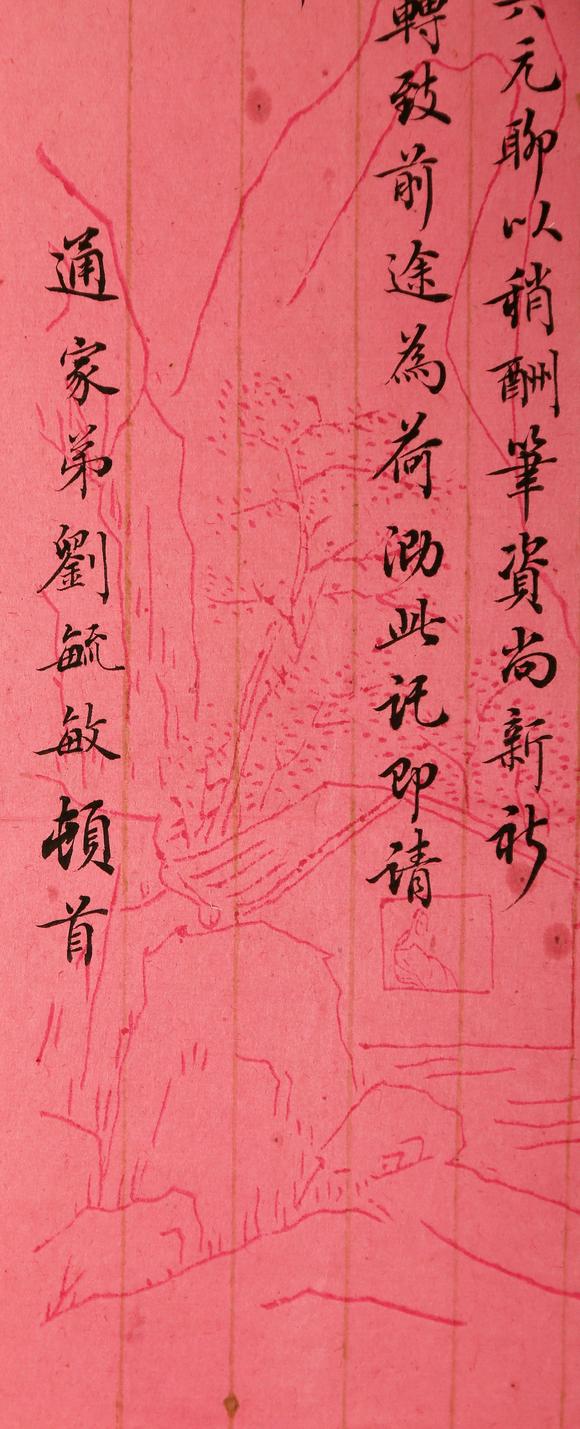 元聊以稍酬筆資尚新祈
轉致前途為荷泐此託即請
通家弟劉毓敏頓首